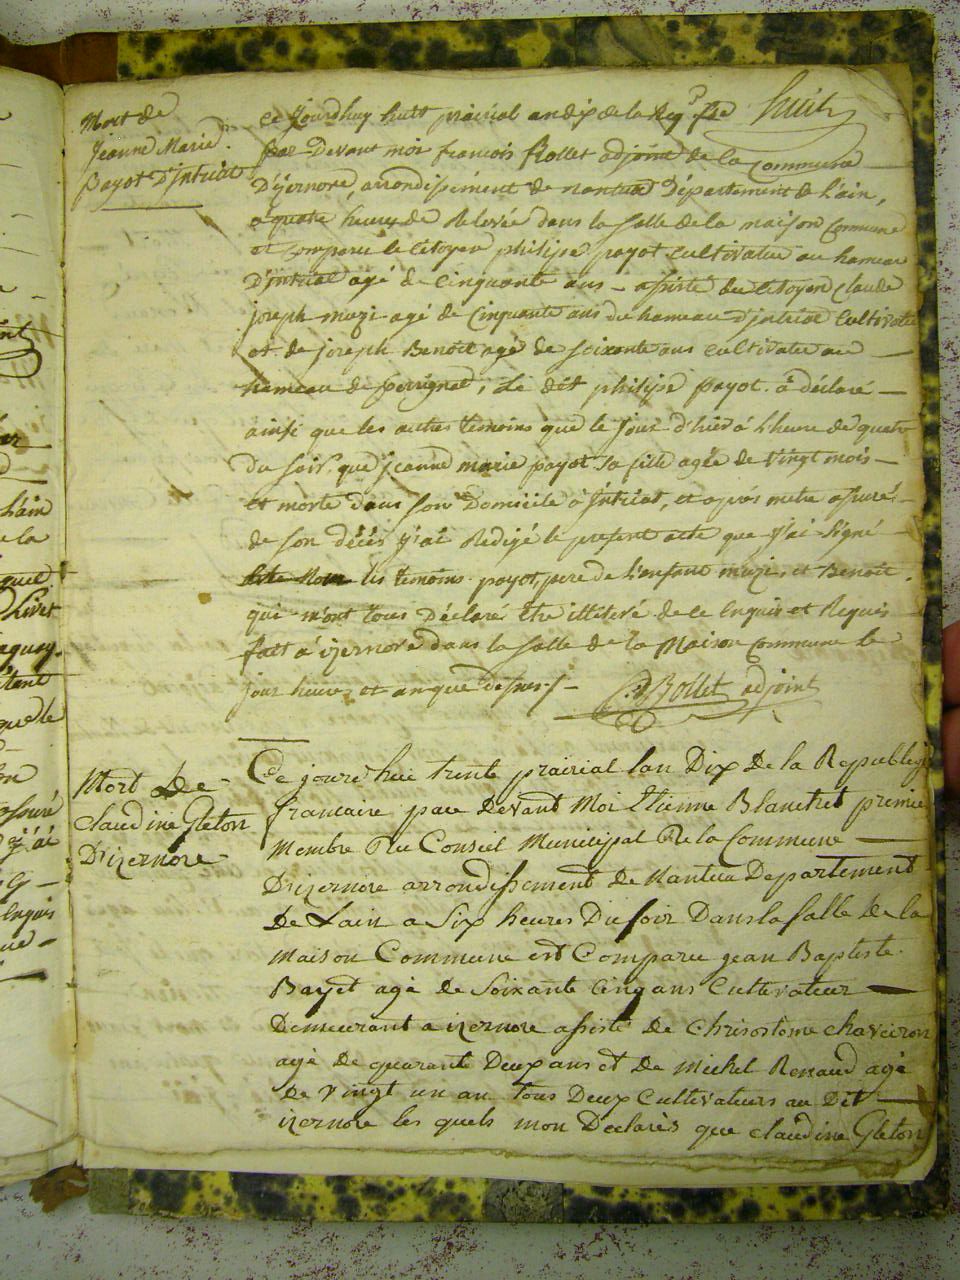 Mort de
Jeanne Marie
payot D'intriat
Ce jourdhuy huit prairial an dix de la Rep. fse huit
par Devant moi françois Rollet adjoint de la Commune
D'izernore, arrondissement de nantua Département de L'ain,
a quatre heures de Relevée dans la salle de la maison Commune
est comparu le Citoyen philipe payot Cultivateur au hameau
D'intriat agé de Cinquante ans – assisté du Citoyen Claude
joseph mugi agé de Cinquante ans du hameau d'intriat Cultivateur
et de joseph Benoit agé de soixante ans cultivateur au
hameau de perrignat; Le dit philipe payot a déclaré –
ainsi que les autres temoins que le jour d'hier à l'heure de quatre
du soir que jeanne marie payot sa fille agée de vingt mois –
est morte dans son Domicile à intriat, et après metre assuré
de son décés j'ai Redigé le present acte que j'ai signé
les temoins payot, pere de l'enfant mugi, et Benoit
qui m'ont tous Déclaré être illiteré de ce Enquis et Requis
fait à izernore dans la salle de la Maison Commune le
jour heure et an que dessus –
Rollet adjoint
Mort de
claudine Gleton
D'izernore
Ce jourd'hui trente prairial lan Dix de la Republiq
francaise par devant Moi Etienne Blanchet premie
Membre Du Conseil Municipal De la Commune
D'izernore arrondissement de Nantua Departement
De Lain a Six heures Du soir Dans la salle De la
Maison Commune est Comparu jean Baptiste
Bayet agé de Soixante Cinq ans Cultivateur
Demeurant a izernore assisté de Chrisostome chaveiron
agé de quarante Deux ans et de Michel Renaud agé
de vingt un an tous Deux Cultivateurs au Dit
izernore les quels mon Declarés que claudine Gleton